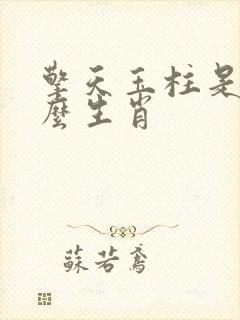 擎天玉柱是
麼生肖
蘇若鳶